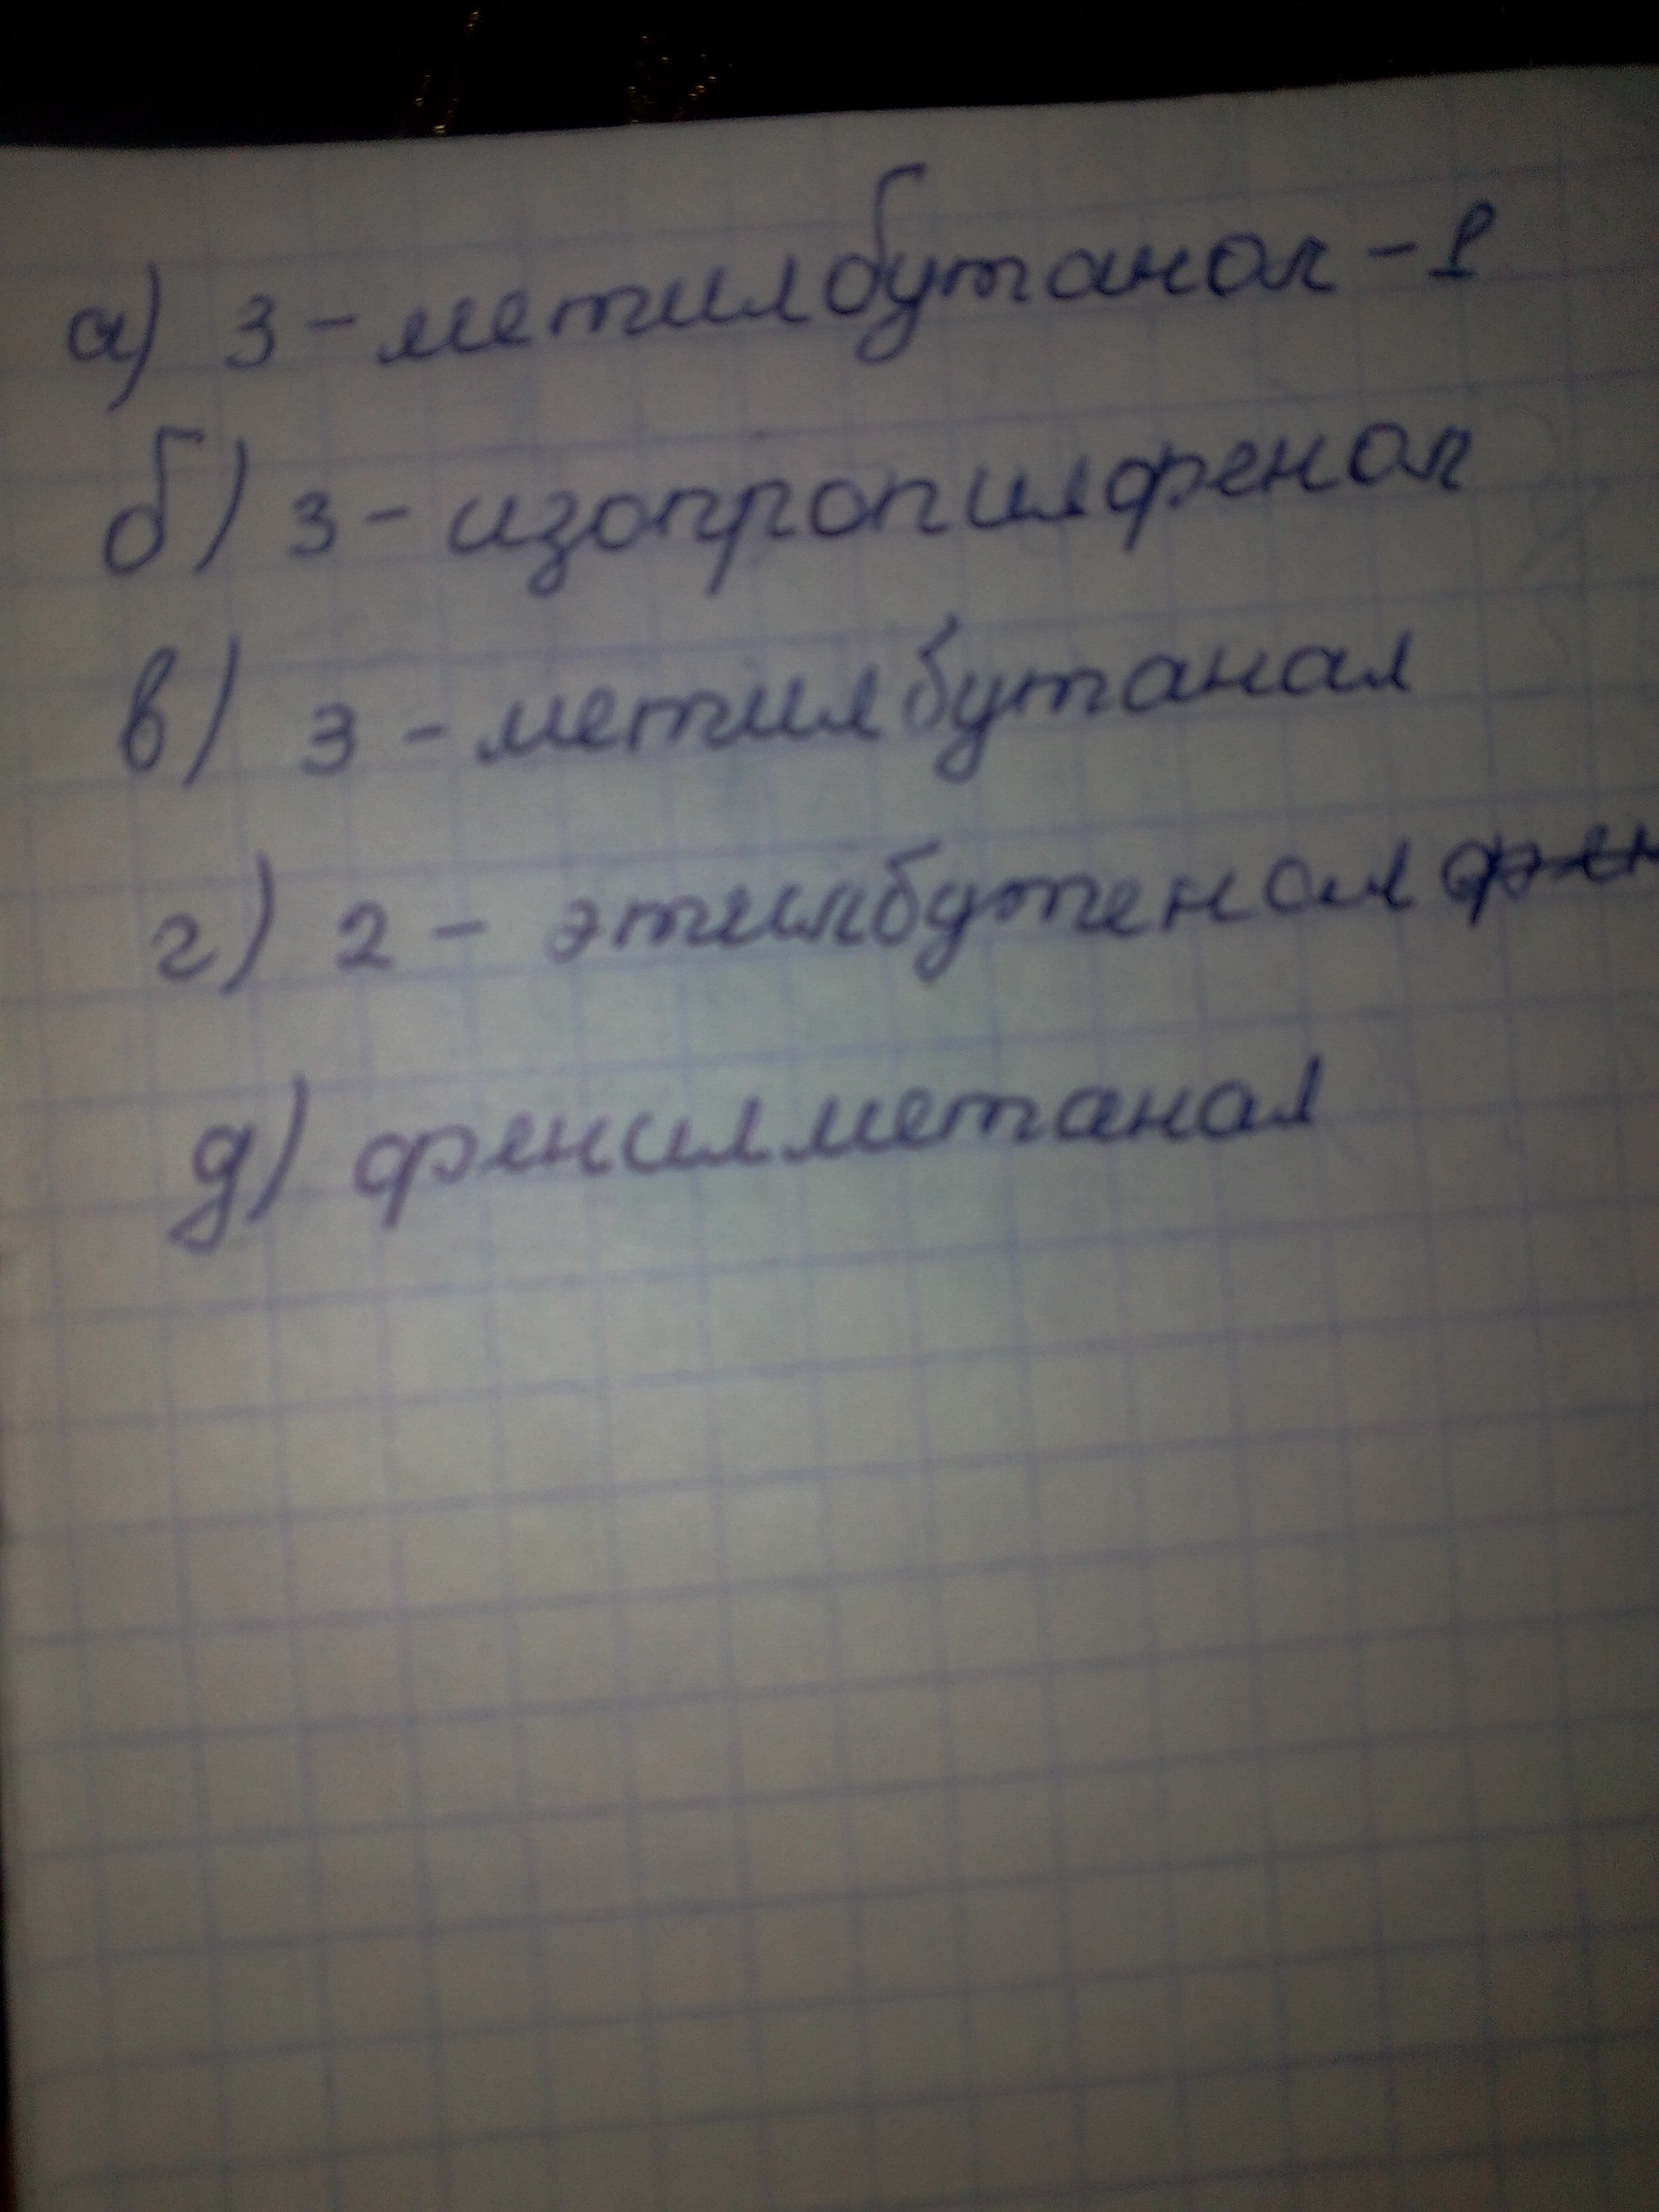 а) 3-метилбутанол-1
б) 3-изопропилфенол
в) 3-метилбутанал
г) 2-этилбутенал
д) фенилметанал